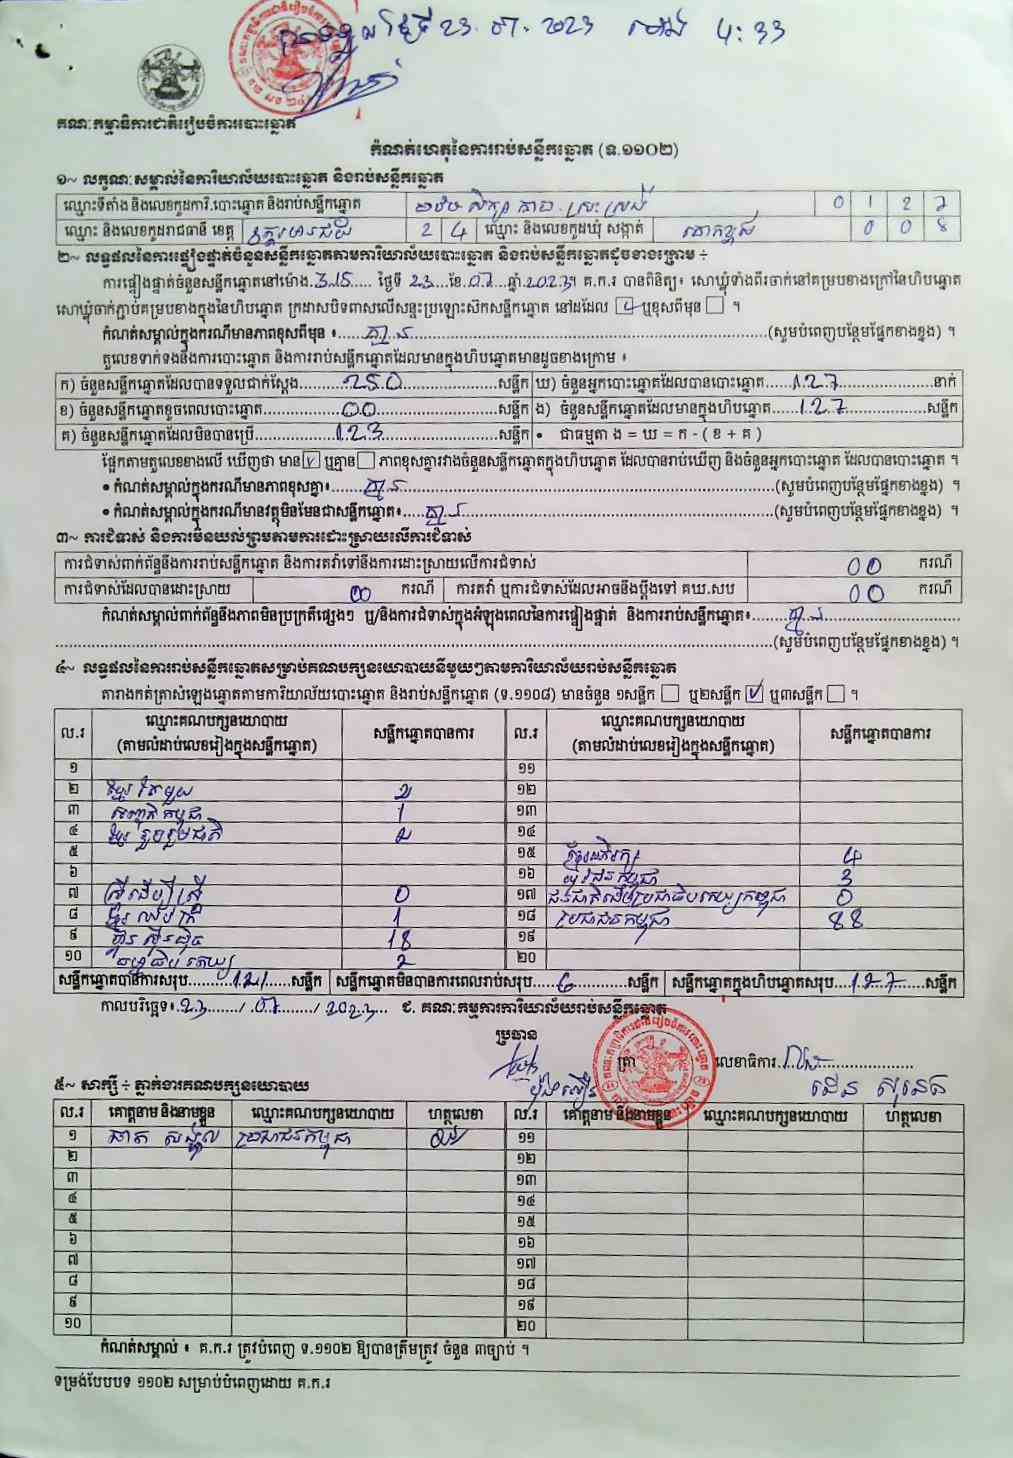 23.07.2023 ម៉ោង 4:33
គណៈកម្មាធិការជាតិរៀបចំការបោះឆ្នោត
កំណត់ហេតុនៃការរាប់សន្លឹកឆ្នោត (ទ.១១០២)
១~ លក្ខណៈសម្គាល់នៃការិយាល័យបោះឆ្នោត និងរាប់សន្លឹកឆ្នោត
ឈ្មោះទីតាំង និងលេខកូដការិ.បោះឆ្នោត និងរាប់សន្លឹកឆ្នោត 0 1 2 7
ឈ្មោះ និងលេខកូដរាជធានី ខេត្ត 2 4 ឈ្មោះ និងលេខកូដឃុំ សង្កាត់ 0 0 8
២~ លទ្ធផលនៃការផ្ទៀងផ្ទាត់ចំនួនសន្លឹកឆ្នោតតាមការិយាល័យបោះឆ្នោត និងរាប់សន្លឹកឆ្នោតដូចខាងក្រោម ÷
ការផ្ទៀងផ្ទាត់ចំនួនសន្លឹកឆ្នោតនៅម៉ោង.3.15..... ថ្ងៃទី 23....ខែ.07...ឆ្នាំ.2023។ គ.ក.រ បានពិនិត្យ៖ សោឃ្លុំទាំងពីរចាក់នៅគម្របខាងក្រៅនៃហិបឆ្នោត
សោឃ្លុំចាក់ភ្ជាប់គម្របខាងក្នុងនៃហិបឆ្នោត ក្រដាសបិទពាសលើសន្ទះប្រឡោះស៊កសន្លឹកឆ្នោត នៅដដែល ☑ ឬខុសពីមុន ☐ ។
កំណត់សម្គាល់ក្នុងករណីមានភាពខុសពីមុន ៖ គ្មាន (សូមបំពេញបន្ថែមផ្នែកខាងខ្នង) ។
តួលេខទាក់ទងនឹងការបោះឆ្នោត និងការរាប់សន្លឹកឆ្នោតដែលមានក្នុងហិបឆ្នោតមានដូចខាងក្រោម ៖
ក) ចំនួនសន្លឹកឆ្នោតដែលបានទទួលជាក់ស្តែង 250 សន្លឹក ឃ) ចំនួនអ្នកបោះឆ្នោតដែលបានបោះឆ្នោត 127 នាក់
ខ) ចំនួនសន្លឹកឆ្នោតខូចពេលបោះឆ្នោត 00 សន្លឹក ង) ចំនួនសន្លឹកឆ្នោតដែលមានក្នុងហិបឆ្នោត 127 សន្លឹក
គ) ចំនួនសន្លឹកឆ្នោតដែលមិនបានប្រើ 123 សន្លឹក • ជាធម្មតា ង = ឃ = ក - ( ខ + គ )
ផ្អែកតាមតួលេខខាងលើ ឃើញថា មាន ☑ ឬគ្មាន ☐ ភាពខុសគ្នារវាងចំនួនសន្លឹកឆ្នោតក្នុងហិបឆ្នោត ដែលបានរាប់ឃើញ និងចំនួនអ្នកបោះឆ្នោត ដែលបានបោះឆ្នោត ។
• កំណត់សម្គាល់ក្នុងករណីមានភាពខុសគ្នា៖ គ្មាន (សូមបំពេញបន្ថែមផ្នែកខាងខ្នង) ។
• កំណត់សម្គាល់ក្នុងករណីមានវត្ថុមិនមែនជាសន្លឹកឆ្នោត៖ គ្មាន (សូមបំពេញបន្ថែមផ្នែកខាងខ្នង) ។
៣~ ការជំទាស់ និងការមិនយល់ព្រមតាមការដោះស្រាយលើការជំទាស់
ការជំទាស់ពាក់ព័ន្ធនឹងការរាប់សន្លឹកឆ្នោត និងការតវ៉ាទៅនឹងការដោះស្រាយលើការជំទាស់ 00 ករណី
ការជំទាស់ដែលបានដោះស្រាយ 00 ករណី ការតវ៉ា ឬការជំទាស់ដែលអាចនឹងប្តឹងទៅ គឃ.សប 00 ករណី
កំណត់សម្គាល់ពាក់ព័ន្ធនឹងភាពមិនប្រក្រតីផ្សេងៗ ឬ/និងការជំទាស់ក្នុងអំឡុងពេលនៃការផ្ទៀងផ្ទាត់ និងការរាប់សន្លឹកឆ្នោត៖ គ្មាន
(សូមបំពេញបន្ថែមផ្នែកខាងខ្នង) ។
៤~ លទ្ធផលនៃការរាប់សន្លឹកឆ្នោតសម្រាប់គណបក្សនយោបាយនីមួយៗតាមការិយាល័យរាប់សន្លឹកឆ្នោត
តារាងកត់ត្រាសំឡេងឆ្នោតតាមការិយាល័យបោះឆ្នោត និងរាប់សន្លឹកឆ្នោត (ទ.១១០៨) មានចំនួន ១សន្លឹក ☐ ឬ២សន្លឹក ☑ ឬ៣សន្លឹក ☐ ។
ល.រ ឈ្មោះគណបក្សនយោបាយ (តាមលំដាប់លេខរៀងក្នុងសន្លឹកឆ្នោត) សន្លឹកឆ្នោតបានការ ល.រ ឈ្មោះគណបក្សនយោបាយ (តាមលំដាប់លេខរៀងក្នុងសន្លឹកឆ្នោត) សន្លឹកឆ្នោតបានការ
១ ១១
២ ខ្មែរតែមួយ 2 ១២
៣ សញ្ជាតិកម្ពុជា 1 ១៣
៤ ខ្មែររួបរួមជាតិ 2 ១៤
៥ ១៥ ខ្មែរអភិរក្ស 4
៦ ១៦ យុវជនកម្ពុជា 3
៧ ស្ត្រីដើម្បីស្ត្រី 0 ១៧ ជនជាតិដើមប្រជាធិបតេយ្យកម្ពុជា 0
៨ 1 ១៨ ប្រជាជនកម្ពុជា 88
៩ ហ៊្វុនស៊ិនប៉ិច 18 ១៩
១០ ធម្មាធិបតេយ្យ 2 ២០
សន្លឹកឆ្នោតបានការសរុប 121 សន្លឹក សន្លឹកឆ្នោតមិនបានការពេលរាប់សរុប 6 សន្លឹក សន្លឹកឆ្នោតក្នុងហិបឆ្នោតសរុប 127 សន្លឹក
កាលបរិច្ឆេទ៖ 23 / 07 / 2023 ជ. គណៈកម្មការការិយាល័យរាប់សន្លឹកឆ្នោត
ប្រធាន
ត្រា លេខាធិការ
៥~ សាក្សី ÷ ភ្នាក់ងារគណបក្សនយោបាយ
ល.រ គោត្តនាម និងនាមខ្លួន ឈ្មោះគណបក្សនយោបាយ ហត្ថលេខា ល.រ គោត្តនាម និងនាមខ្លួន ឈ្មោះគណបក្សនយោបាយ ហត្ថលេខា
១ ប្រជាជនកម្ពុជា ១១
២ ១២
៣ ១៣
៤ ១៤
៥ ១៥
៦ ១៦
៧ ១៧
៨ ១៨
៩ ១៩
១០ ២០
កំណត់សម្គាល់ ៖ គ.ក.រ ត្រូវបំពេញ ទ.១១០២ ឱ្យបានត្រឹមត្រូវ ចំនួន ៣ច្បាប់ ។
ទម្រង់បែបបទ ១១០២ សម្រាប់បំពេញដោយ គ.ក.រ